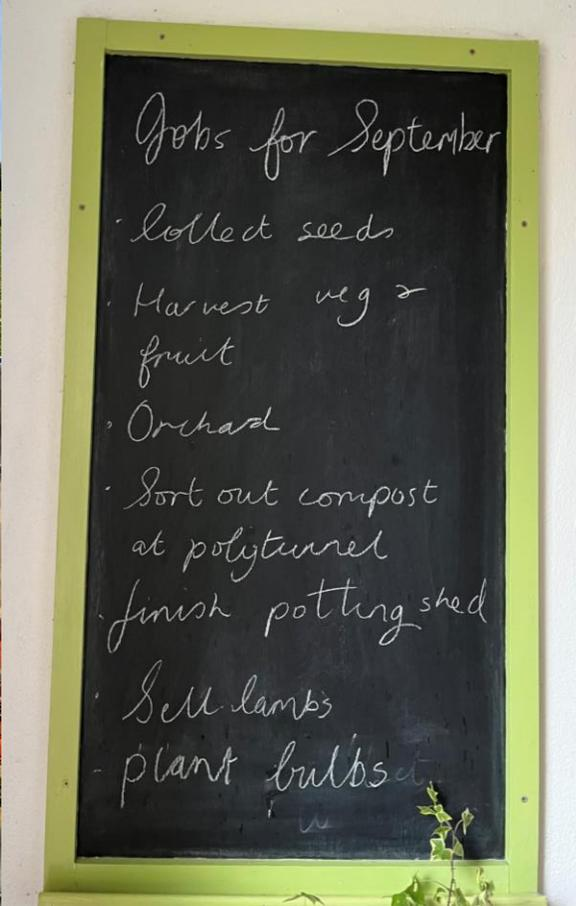 Jobs for September
· Collect seeds
· Harvest veg &
fruit
· Orchard
· Sort out compost
at polytunnel
· finish potting shed
· Sell lambs
- plant bulbs